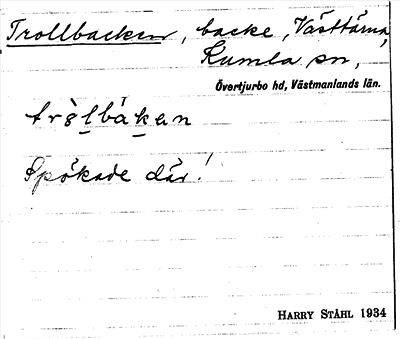 Trollbacken, backe, Västtärna,
Kumla sn,
Övertjurbo hd, Västmanlands län.
tròlbákan
Spökade där!
HARRY STÅHL 1934